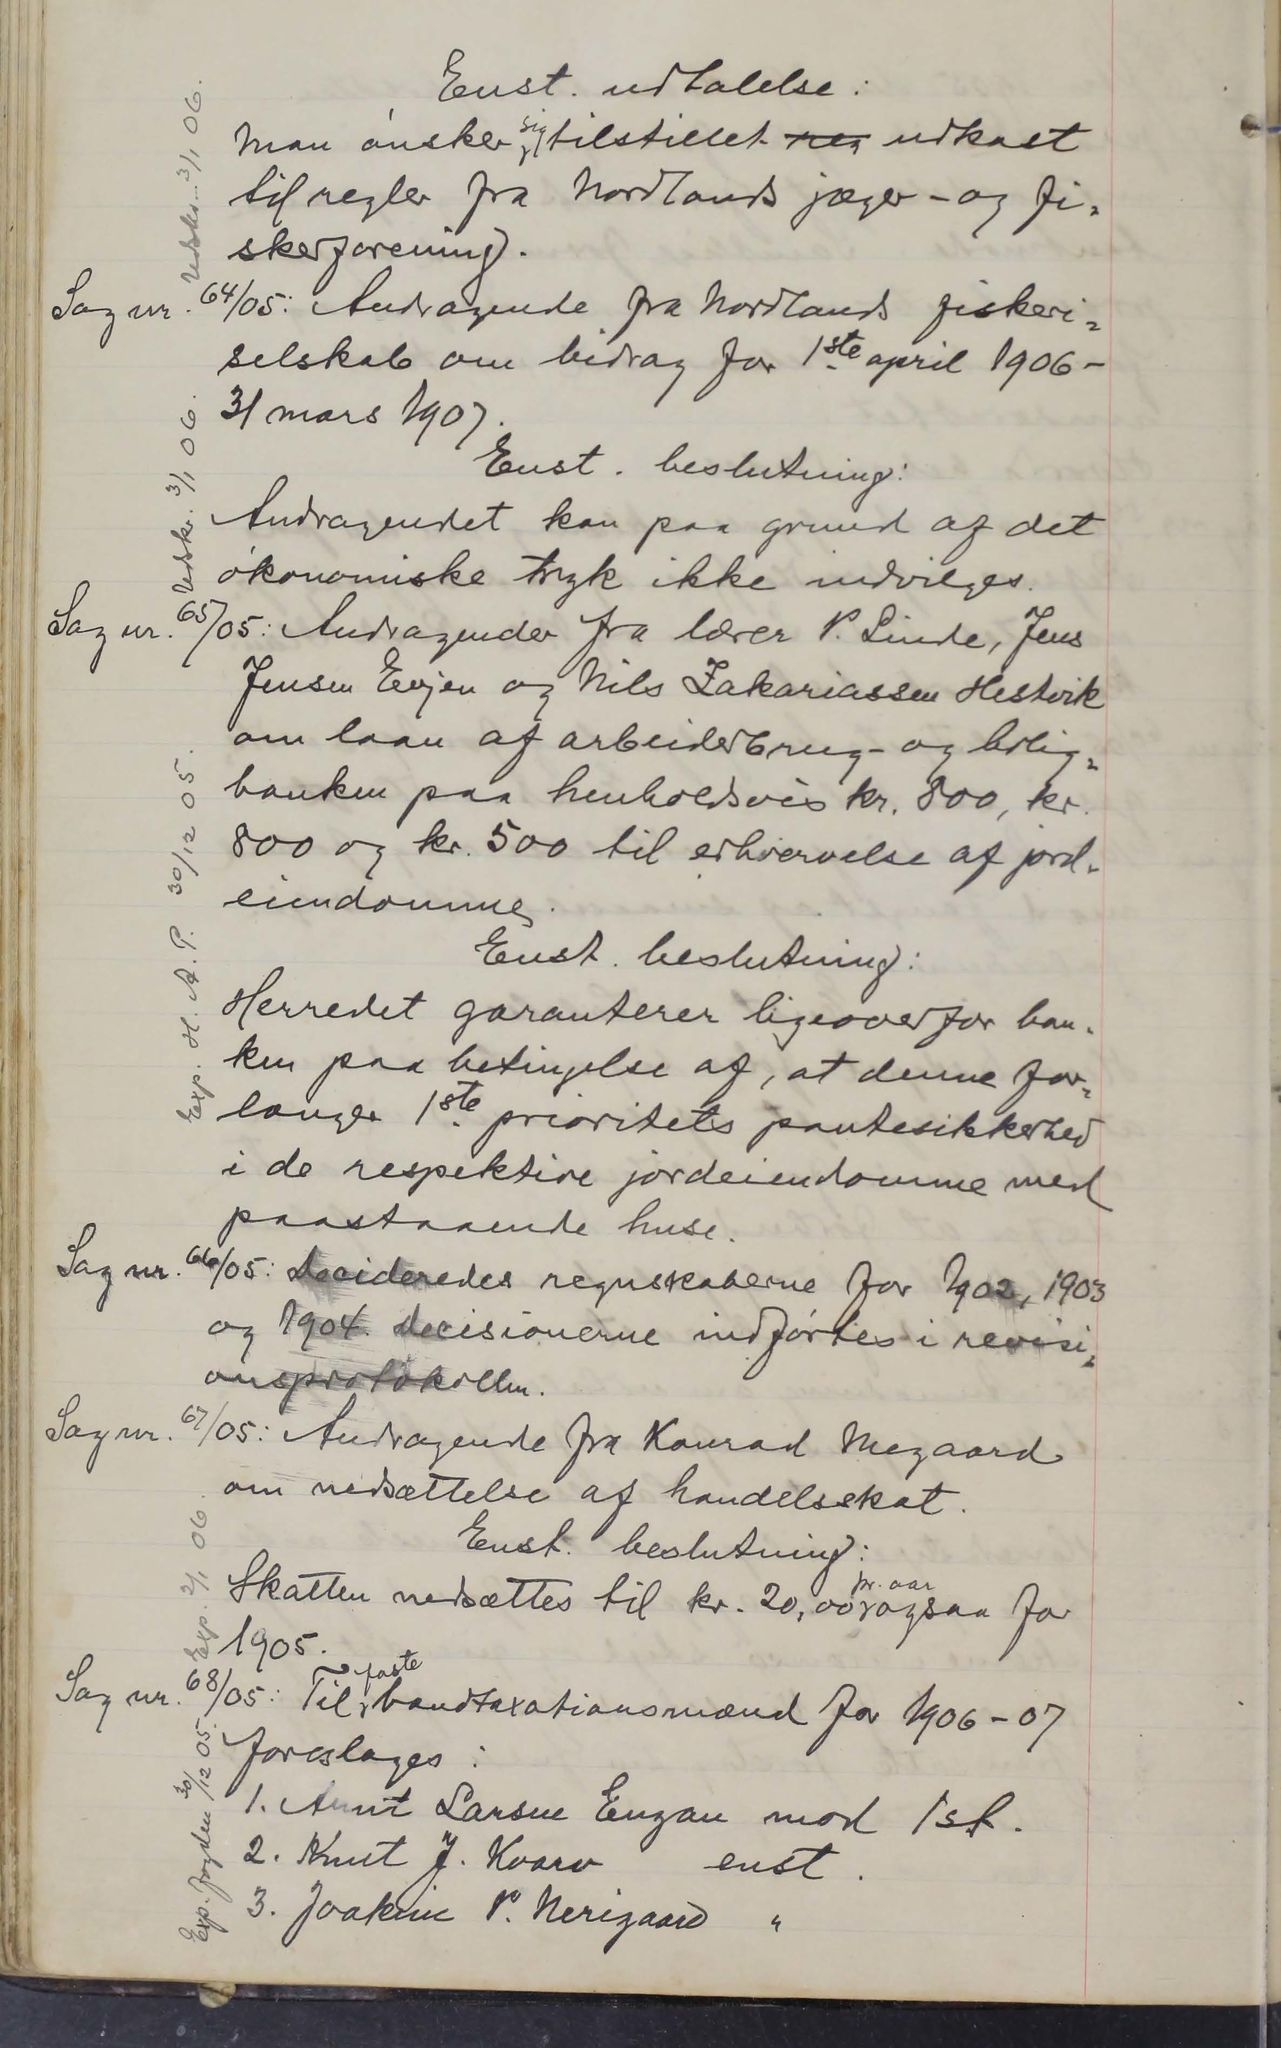 Enst. udtalelse:
Man ønsker sig tilstillet udkast
til regler fra Nordlands jæger- og fi-
skerforening.
Sag nr. 64/05: Andragende fra Nordlands fiskeri-
selskab om bidrag for 1ste april 1906-
31 mars 1907.
Enst. beslutning:
Andragendet kan paa grund af det
økonomiske tryk ikke indvilges.
Sag nr. 65/05: Andragender fra lærer P. Linde, Jens
Jensen Evjen og Nils Zakariassen Hestvik
om laan af arbeiderbrug- og bolig-
banken paa henholdsvis kr. 800, kr.
800 og kr. 500 til erhvervelse af jord-
eiendomme.
Enst. beslutning:
Herredet garanterer ligeoverfor ban-
ken paa betingelse af, at denne for-
langer 1ste prioritets pantesikkerhed
i de respektive jordeiendomme med
paastaaende huse.
Sag nr. 66/05: Decideredes regnskaberne for 1902, 1903
og 1904. Decisionerne indførtes i revisi-
onsprotokollen.
Sag nr. 67/05: Andragende fra Konrad Megaard
om nedsættelse af handelsskat.
Enst. beslutning:
Skatten nedsættes til kr. 20,00 pr. aar ogsaa for
1905.
Sag nr. 68/05: Til faste bandtaxationsmænd for 1906-07
foreslages:
1. Arnt Larsen Engan mod 1 st.
2. Knut J. Kvarv enst.
3. Joakim P. Nerigaard "
Udskr. 3/1 06.
Udskr. 3/1 06.
Exp. H. A. P. 30/12 05.
Exp. 2/1 06
Exp. fogden 30/12 05.